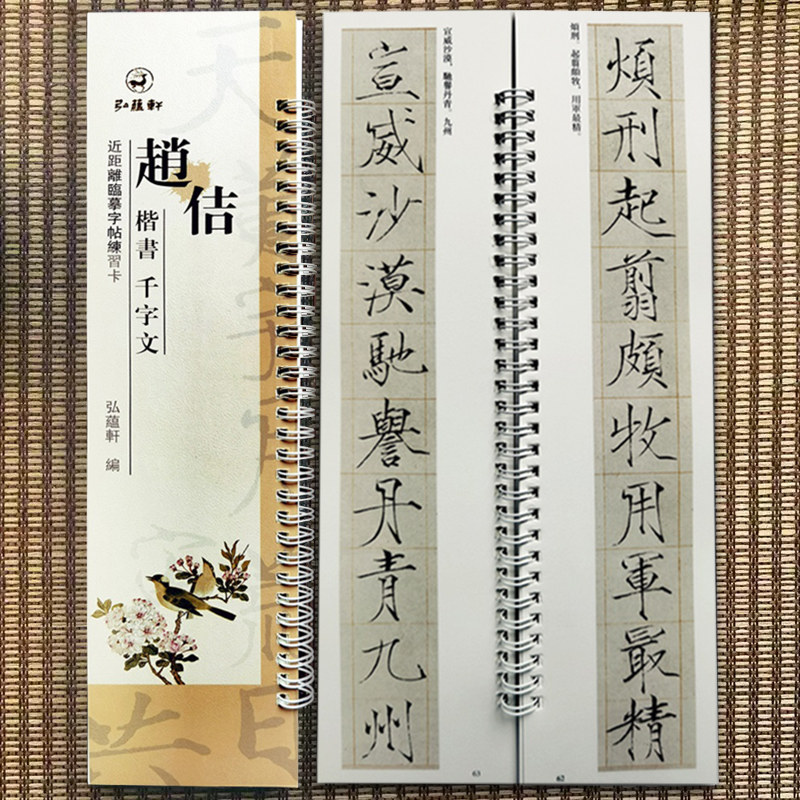 弘蘊軒
趙佶
楷書 千字文
近距離臨摹字帖練習卡
弘蘊軒 編
煩刑起翦頗牧用軍最精
煩刑。起翦頗牧，用軍最精。
62
宣威沙漠，馳譽丹青。九州
宣威沙漠馳譽丹青九州
63